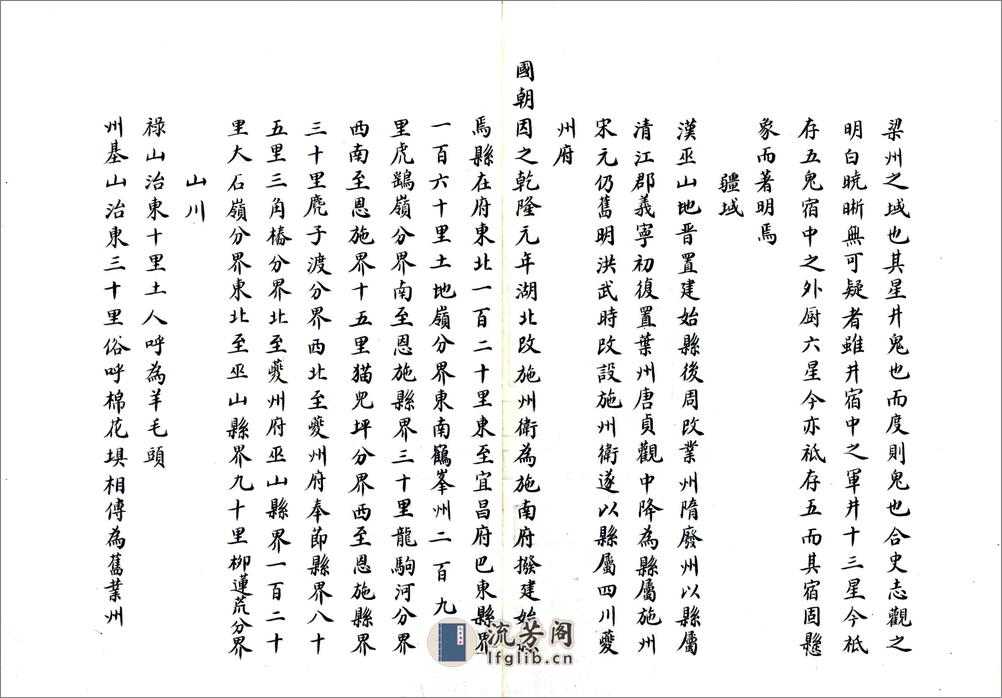 梁州之域也其星井鬼也而度則鬼也合史志觀之
明白曉晰無可疑者雖井宿中之軍井十三星今祗
存五鬼宿中之外厨六星今亦祗存五而其宿固懸
象而著明焉
疆域
漢巫山地晉置建始縣後周改業州隋廢州以縣屬
清江郡義寧初復置葉州唐貞觀中降為縣屬施州
宋元仍舊明洪武時改設施州衛遂以縣屬四川夔
州府
國朝因之乾隆元年湖北改施州衛為施南府撥建始
焉縣在府東北一百二十里東至宜昌府巴東縣界
一百六十里土地嶺分界東南鶴峯州二百九
里虎鷂嶺分界南至恩施縣界三十里龍駒河分界
西南至恩施界十五里猫兒坪分界西至恩施縣界
三十里麂子渡分界西北至夔州府奉節縣界八十
五里三角樁分界北至夔州府巫山縣界一百二十
里大石嶺分界東北至巫山縣界九十里柳蓮荒分界
山川
祿山治東十里土人呼為羊毛頭
州基山治東三十里俗呼棉花埧相傳為舊業州
流芳阁
lfglib.cn